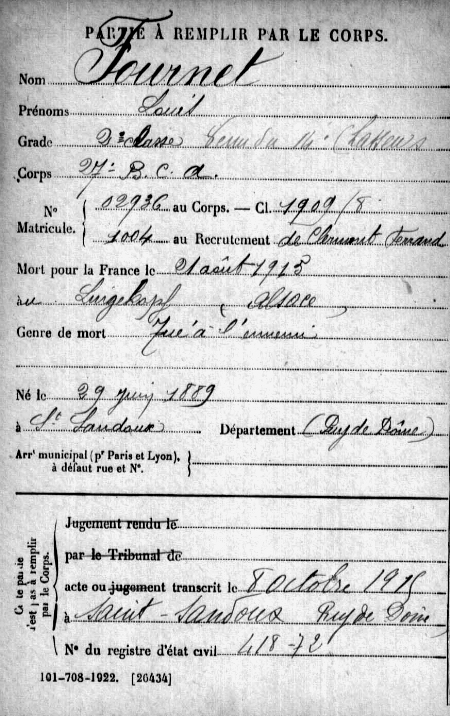 PARTIE À REMPLIR PAR LE CORPS.
Nom Fournet
Prénoms Louis
Grade 2e classe Chasseurs
Corps 27e B. C. A.
N° Matricule. 02936 au Corps. — Cl. 1909/8
1004 au Recrutement de Clermont Ferrand
Mort pour la France le 21 août 1915
au Lingekopf (Alsace)
Genre de mort Tué à l'ennemi
Né le 29 juin 1889
à St Sandoux Département (Puy de Dôme)
Arrt municipal (pr Paris et Lyon), à défaut rue et N°.
Cette partie n'est pas à remplir par le Corps.
Jugement rendu le
par le Tribunal de
acte ou jugement transcrit le 8 octobre 1915
à Saint-Sandoux Puy de Dôme
N° du registre d'état civil 418-72
101-708-1922. [26434]